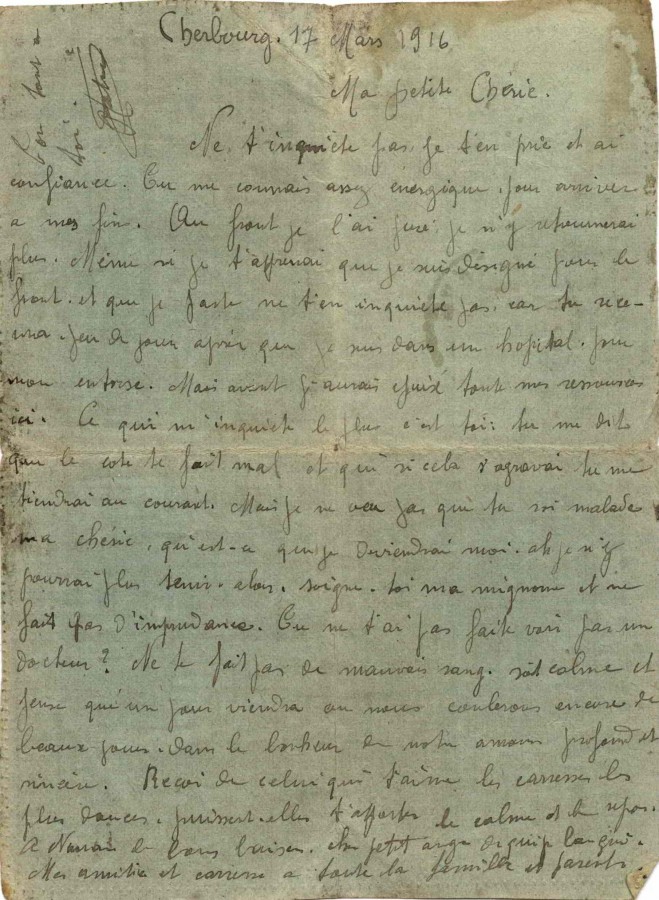 Cherbourg. 17 Mars 1916
Ma petite Chérie.
Ne t'inquiete pas je t'en prie et ai
confiance. Tu me connais assez energique. pour arriver
a mes fin. Au front je l'ai juré je n'y retournerai
plus. Même si je t'apprenai que je suis désigné pour le
front. et que je parte ne t'en inquiete pas. car tu rece-
vra. peu de jour après que je suis dans un hopital. pour
mon entorse. Mais avant j'aurais épuisé toute mes ressources
ici. Ce qui m'inquiete le plus c'est toi: tu me dit
que le coté te fait mal et qui si cela s'agravai tu me
tiendrai au courant. Mais je ne veu pas que tu soi malade
ma chérie, qu'est-ce que je deviendrai moi. ah je n'y
pourrai plus tenir. alors. soigne. toi ma mignonne et ne
fait pas d'imprudance. Tu ne t'ai pas faite voir par un
docteur? Ne te fait pas de mauvais sang. soit calme et
pense qu'un jour viendra ou nous coulerons encore de
beaux jours. dans le bonheur de notre amour profond et
sincère. Reçoi de celui qui t'aime les carresses les
plus douces. puissent-elles t'apporter le calme et le repos.
A de bons baisers. petit ange
Mes amitié et carresse a toute la famille et parents
bon tout a
toi.